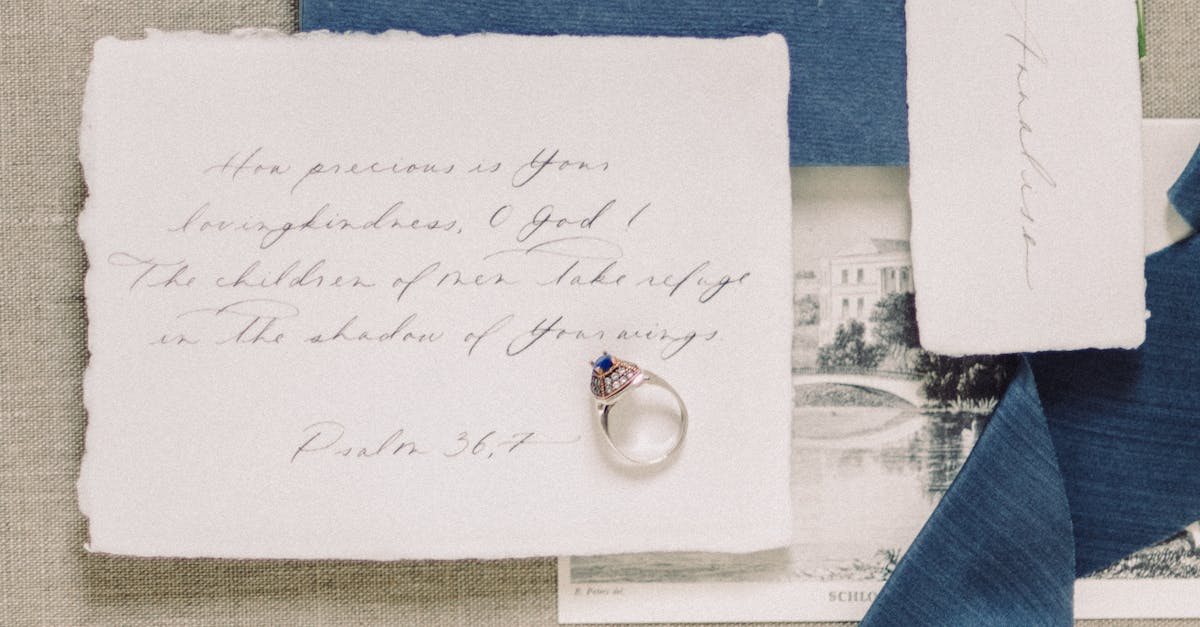 How precious is Yours
lovingkindness, O God!
The children of men take refuge
in the shadow of Your wings.
Psalm 36,7
Annalisa
E. Peters del.
SCHLO